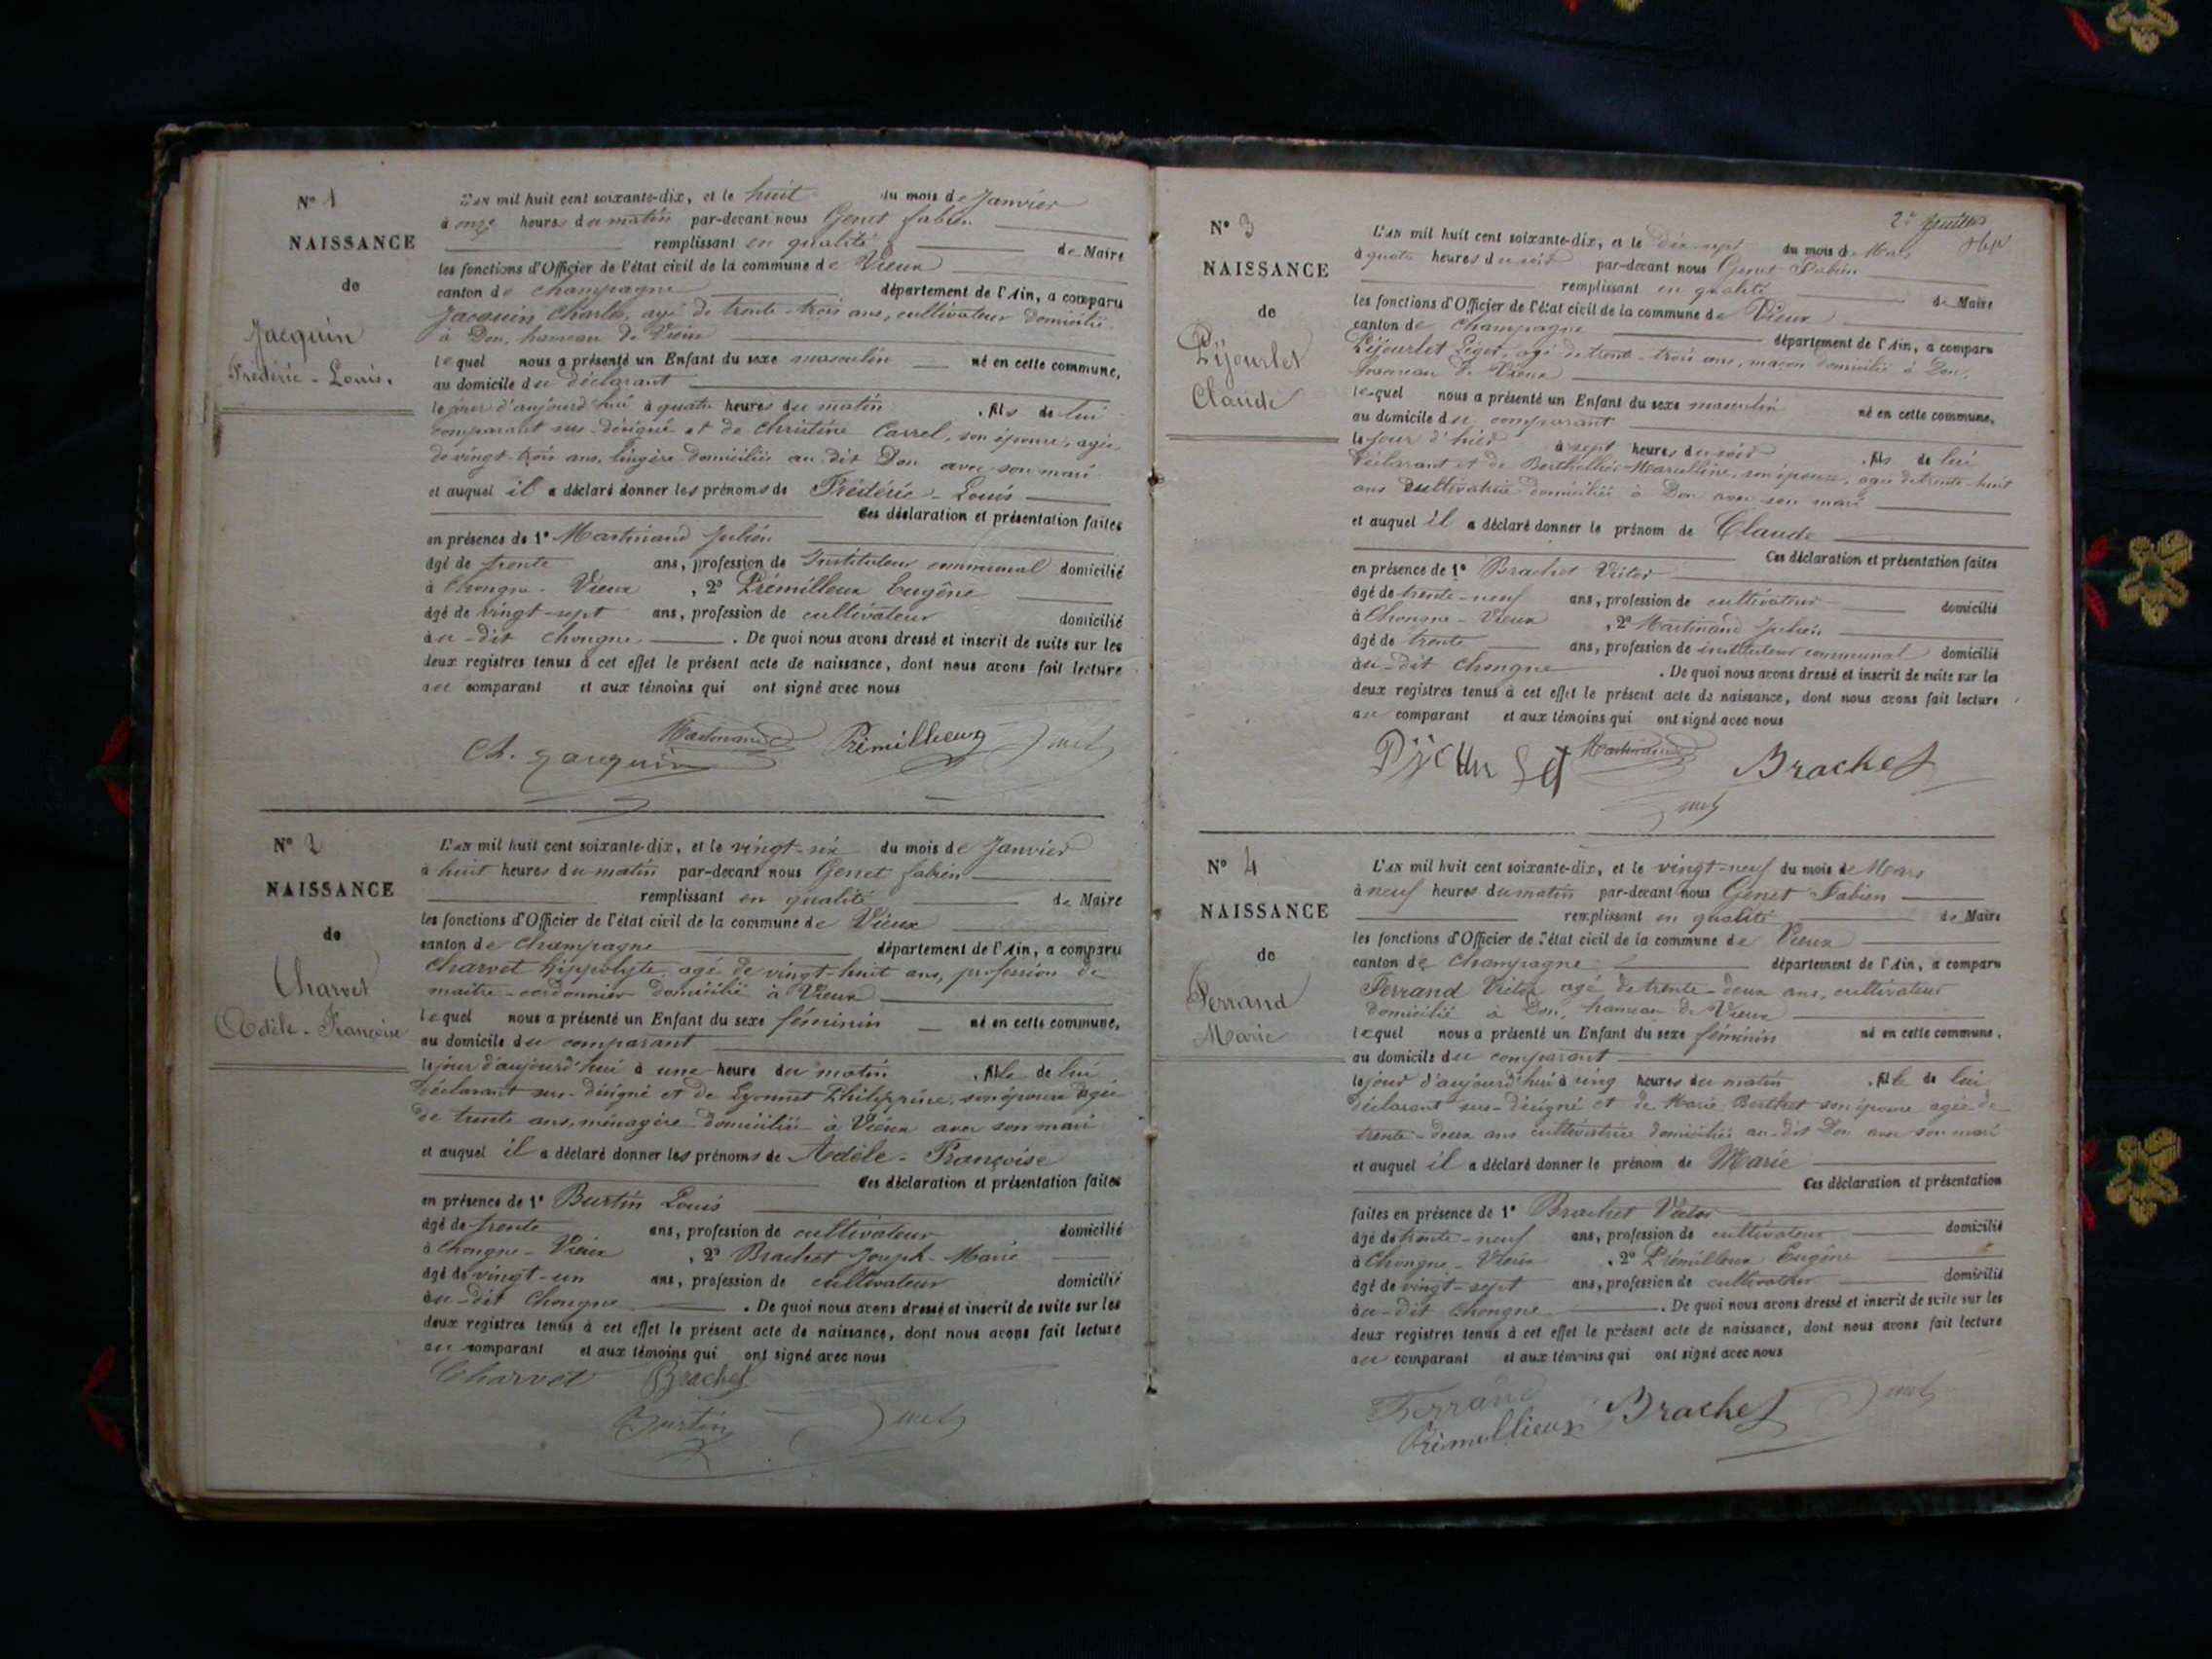 N° 1
NAISSANCE
de
Jacquin
Frédéric - Louis.
L'AN mil huit cent soixante-dix, et le huit du mois de Janvier
à onze heures du matin par-devant nous Genet fabien
remplissant en qualité de Maire
les fonctions d'Officier de l'état civil de la commune de Vieux
canton de Champagne département de l'Ain, a comparu
Jacquin Charles, agé de trente-trois ans, cultivateur domicilié
à Don, hameau de Vieux
lequel nous a présenté un Enfant du sexe masculin né en cette commune,
au domicile du déclarant
le jour d'aujourd'hui à quatre heures du matin , fils de lui
comparant sus-désigné et de Christine Carrel, son épouse, agée
de vingt-trois ans, lingère domiciliée au dit Don avec son mari
et auquel il a déclaré donner les prénoms de Frédéric - Louis
Ces déclaration et présentation faites
en présence de 1° Martinand Julien
âgé de trente ans, profession de Instituteur communal domicilié
à Chongne - Vieux , 2° Prémilleux Eugène
âgé de vingt-sept ans, profession de cultivateur domicilié
au-dit Chongne . De quoi nous avons dressé et inscrit de suite sur les
deux registres tenus à cet effet le présent acte de naissance, dont nous avons fait lecture
au comparant et aux témoins qui ont signé avec nous
Ch. Jacquin Martinand Prémillieux Genet
N° 2
NAISSANCE
de
Charvet
Adèle - Françoise
L'AN mil huit cent soixante-dix, et le vingt-six du mois de Janvier
à huit heures du matin par-devant nous Genet fabien
remplissant en qualité de Maire
les fonctions d'Officier de l'état civil de la commune de Vieux
canton de Champagne département de l'Ain, a comparu
Charvet hippolyte, agé de vingt-huit ans, profession de
maître-cordonnier domicilié à Vieux
lequel nous a présenté un Enfant du sexe féminin né en cette commune,
au domicile du comparant
le jour d'aujourd'hui à une heure du matin , fille de lui
déclarant sus-désigné et de Lyonnet Philippine, son épouse agée
de trente ans, ménagère domiciliée à Vieux avec son mari
et auquel il a déclaré donner les prénoms de Adèle - Françoise
Ces déclaration et présentation faites
en présence de 1° Burtin Louis
âgé de trente ans, profession de cultivateur domicilié
à Chongne - Vieux , 2° Brachet Joseph-Marie
âgé de vingt-un ans, profession de cultivateur domicilié
au-dit Chongne . De quoi nous avons dressé et inscrit de suite sur les
deux registres tenus à cet effet le présent acte de naissance, dont nous avons fait lecture
au comparant et aux témoins qui ont signé avec nous
Charvet Brachet
Burtin Genet
2e feuillet
N° 3
NAISSANCE
de
Pijourlet
Claude
L'AN mil huit cent soixante-dix, et le dix-sept du mois de Mars
à quatre heures du soir par-devant nous Genet Fabien
remplissant en qualité de Maire
les fonctions d'Officier de l'état civil de la commune de Vieux
canton de Champagne département de l'Ain, a comparu
Pijourlet Léger, agé de trente-trois ans, maçon domicilié à Don,
hameau de Vieux
lequel nous a présenté un Enfant du sexe masculin né en cette commune,
au domicile du comparant
le jour d'hier à sept heures du soir , fils de lui
déclarant et de Berthollier Marcelline, son épouse, agée de trente-huit
ans cultivatrice domiciliée à Don avec son mari
et auquel il a déclaré donner le prénom de Claude
Ces déclaration et présentation faites
en présence de 1° Brachet Victor
âgé de trente-neuf ans, profession de cultivateur domicilié
à Chongne - Vieux , 2° Martinand Julien
âgé de trente ans, profession de instituteur communal domicilié
au-dit Chongne . De quoi nous avons dressé et inscrit de suite sur les
deux registres tenus à cet effet le présent acte de naissance, dont nous avons fait lecture
au comparant et aux témoins qui ont signé avec nous
Martinand Brachet
Genet
N° 4
NAISSANCE
de
Ferrand
Marie
L'AN mil huit cent soixante-dix, et le vingt-neuf du mois de Mars
à neuf heures du matin par-devant nous Genet Fabien
remplissant en qualité de Maire
les fonctions d'Officier de l'état civil de la commune de Vieux
canton de Champagne département de l'Ain, a comparu
Ferrand Victor agé de trente-deux ans, cultivateur
domicilié à Don, hameau de Vieux
lequel nous a présenté un Enfant du sexe féminin né en cette commune,
au domicile du comparant
le jour d'aujourd'hui à cinq heures du matin , fille de lui
déclarant sus-désigné et de Marie Berthet son épouse agée de
trente-deux ans cultivatrice domiciliée au-dit Don avec son mari
et auquel il a déclaré donner le prénom de Marie
Ces déclaration et présentation
faites en présence de 1° Brachet Victor
âgé de trente-neuf ans, profession de cultivateur domicilié
à Chongne - Vieux , 2° Prémilleux Eugène
âgé de vingt-sept ans, profession de cultivateur domicilié
au-dit Chongne . De quoi nous avons dressé et inscrit de suite sur les
deux registres tenus à cet effet le présent acte de naissance, dont nous avons fait lecture
au comparant et aux témoins qui ont signé avec nous
Ferrand Brachet Genet
Prémillieux